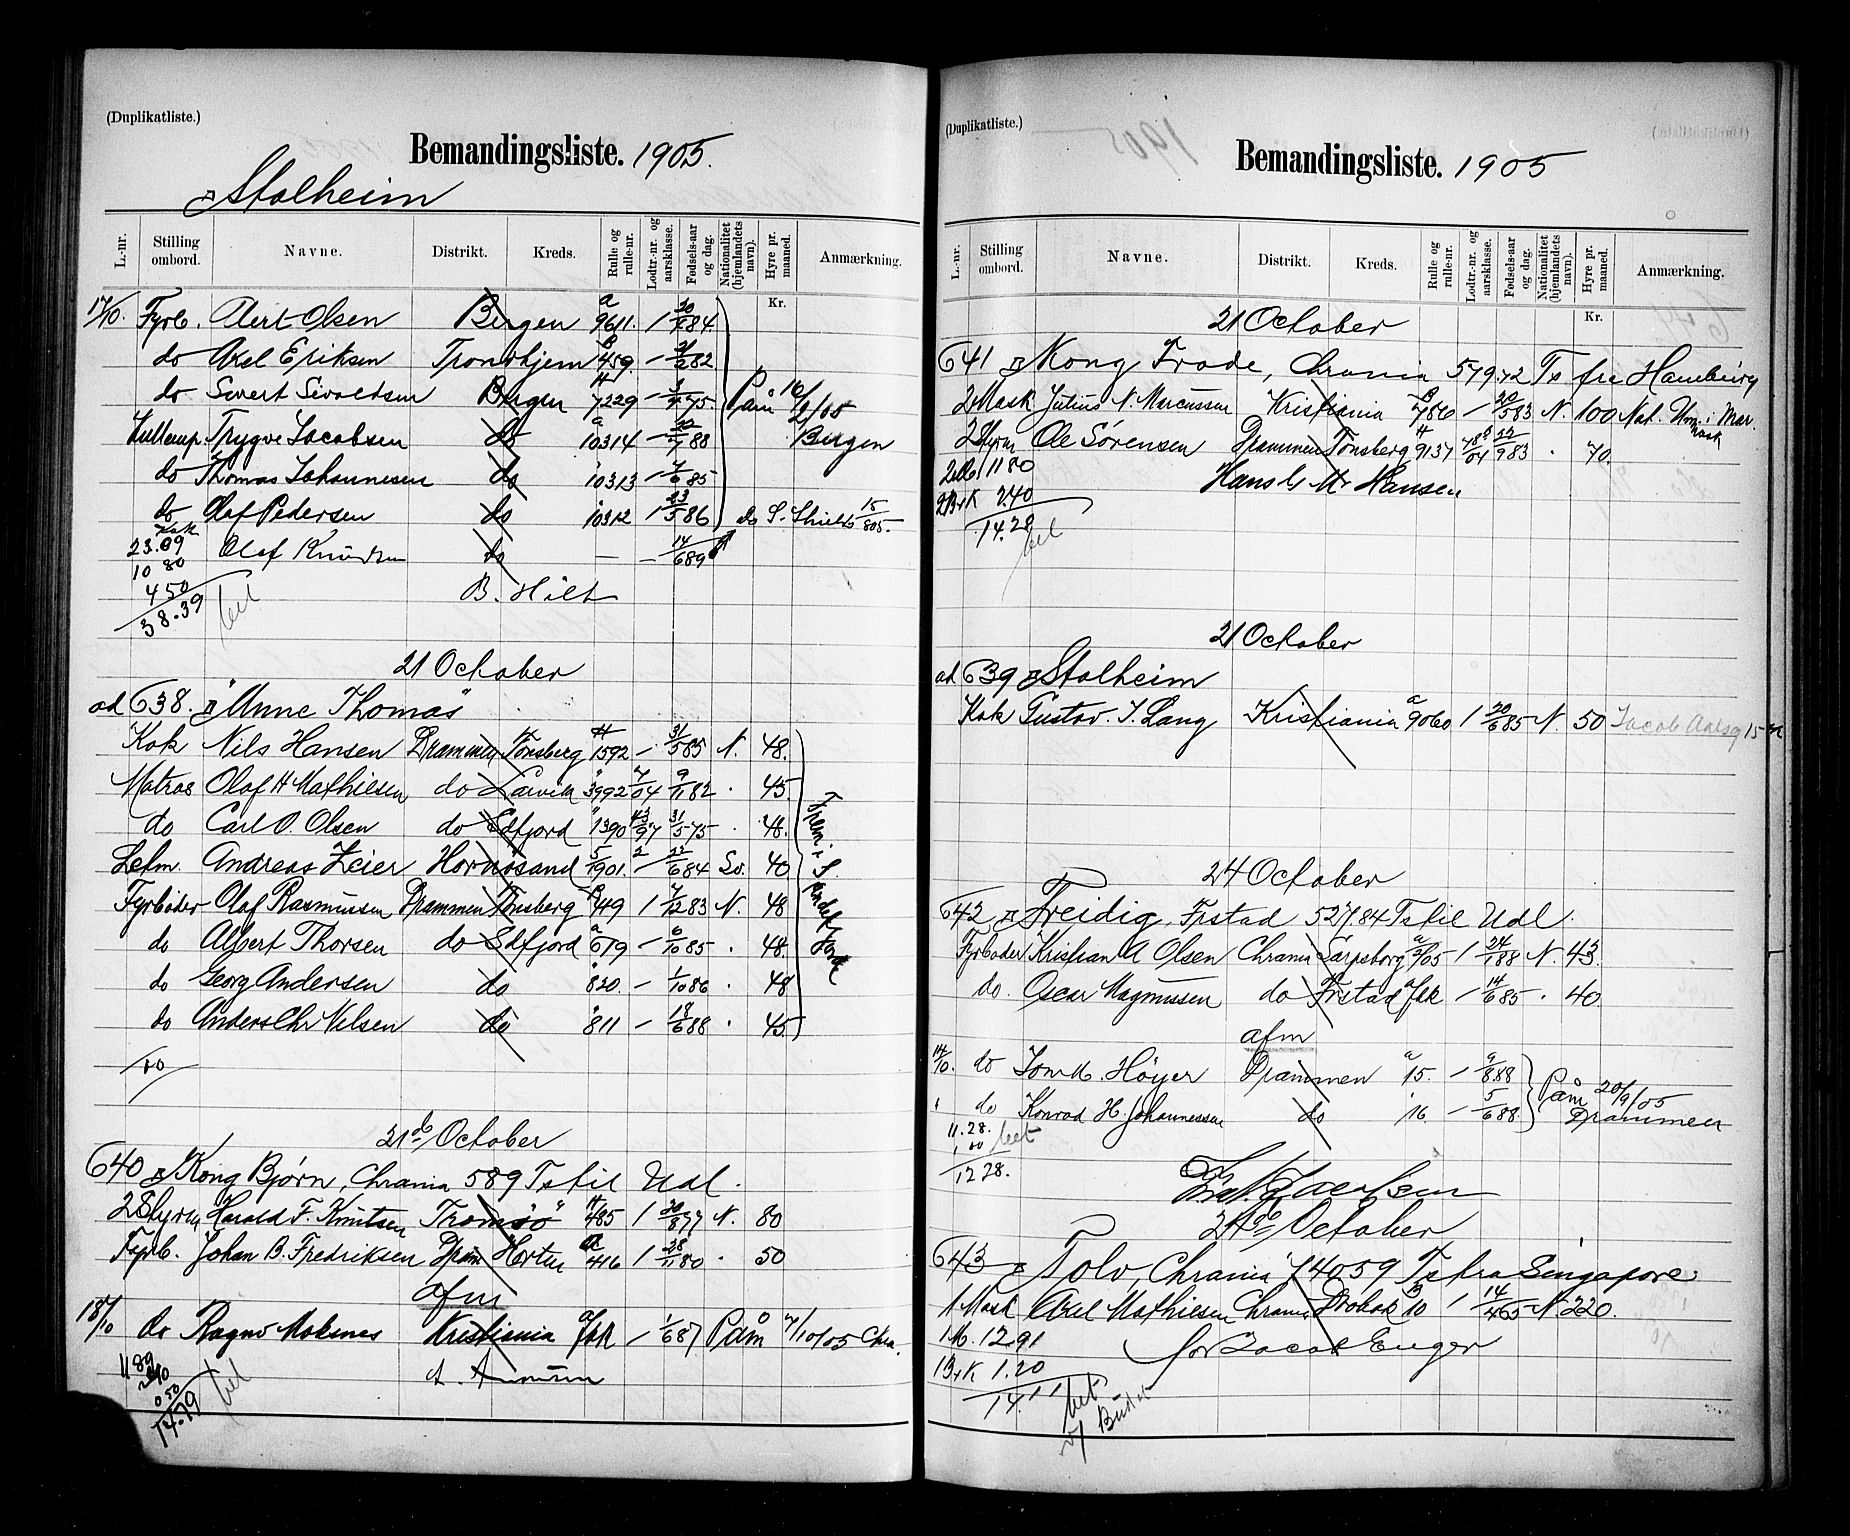 (Duplikatliste.)
Bemandingsliste. 1905.
Stalheim
L.-nr. Stilling ombord. Navne. Distrikt. Kreds. Rulle og rulle-nr. Lodtr.-nr. og aarsklasse. Fødsels-aar og dag. Nationalitet (hjemlandets navn). Hyre pr. maaned. Anmærkning.
Kr.
17/10. Fyrb. Alert Olsen Bergen a 9611. 1 20/484
do Axel Eriksen Trondhjem 459. — 21/282
do Sivert Sivaldsen Bergen 7229 — 75. Påm 10/2/05
Trygve Jacobsen do a 10314 — 22/788 Bergen
do Thomas Johannesen do " 10313 — 7/685
do Olaf Pedersen do " 10312 1 23/586 do S. Shields 15/805.
Kok
23.09 Olaf Knudsen do — — 14/689
10 80
4 50 B. Hilt
38.39 bet
21 October
ad 638. D "Anne Thomas"
Kok Nils Hansen Drammen Tønsberg 1592 — 31/585 N. 48.
Matros Olaf H Mathiesen do Larvik " 3992 7/04 9/1182 · 45.
do Carl O. Olsen do Edfjord " 1390 43/97 31/575 · 48.
Letm. Andreas Zeier Hornösand 5/1901. 2 22/684 Sv. 40.
Fyrbøder Olaf Rasmussen Drammen Tønsberg 449 1 7/1283 N. 48
do Albert Thorsen do Edfjord a 679 — 6/1085 · 48.
do Georg Andersen do " 820. — 1/1086 · 48
do Anders Chr Nilsen do " 811 — 18/688 · 45.
21de October
640 D Kong Bjørn, Chrania 589 Ts til Udl.
2 Styrm, Harald F. Knutsen Tromsö " 485 1 20/877 N. 80
Fyrb. Johan B. Fredriksen Dram Horten a 416 1 28/1180 · 50
afm
18/10 do Ragnv Moksnes Kristiania a fbk — 1/687 Påm 7/10/05 Chra.
11 89
2 40
0 50
14.79 bet
(Duplikatliste.)
Bemandingsliste. 1905
L.-nr. Stilling ombord. Navne. Distrikt. Kreds. Rulle og rulle-nr. Lodtr.-nr. og aarsklasse. Fødsels-aar og dag. Nationalitet (hjemlandets navn). Hyre pr. maaned. Anmærkning.
Kr.
21 October
641 D Kong Frode, Chrania 579.72 Ts fra Hamburg
2 Mask Julius N. Marcussen Kristiania 786 — 20/583 N. 100 Nat. Mar.
2 Styrm Ole Sørensen Drammen Tønsberg 9137 22/983 · 70.
11 80 Hans Hansen
B+K 2.40
14.20
bet
21 October
ad 639 D Stalheim
Kok Gustav. J. Lang Kristiania a 9060 1 20/685 N. 50 Jacob
24 October
642 D Freidig, Frstad 527.84 Ts til Udl.
Fyrbøder Kristian A Olsen Chrania Sarpsborg 1 24/188 N. 43.
do. Oscar Magnussen do Frstad a fbk — 14/685 · 40
afm
14/10. do Tom d. Höyer Drammen a 15. — 9/888 Påm 20/9/05
" do Konrad H. Johannessen do " 16. — 5/688 Drammen
11.28.
1,00 bet
12 28.
24de October
643 D Tolv, Chrania 14059 Ts fra Singapore
1 Mask Axel Mathiesen Chrania Drøbak 10 1 14/465 N 220.
1 M. 12.91 for Jacob Enger
B+K 1.20
14.11
bet
v/ Budet